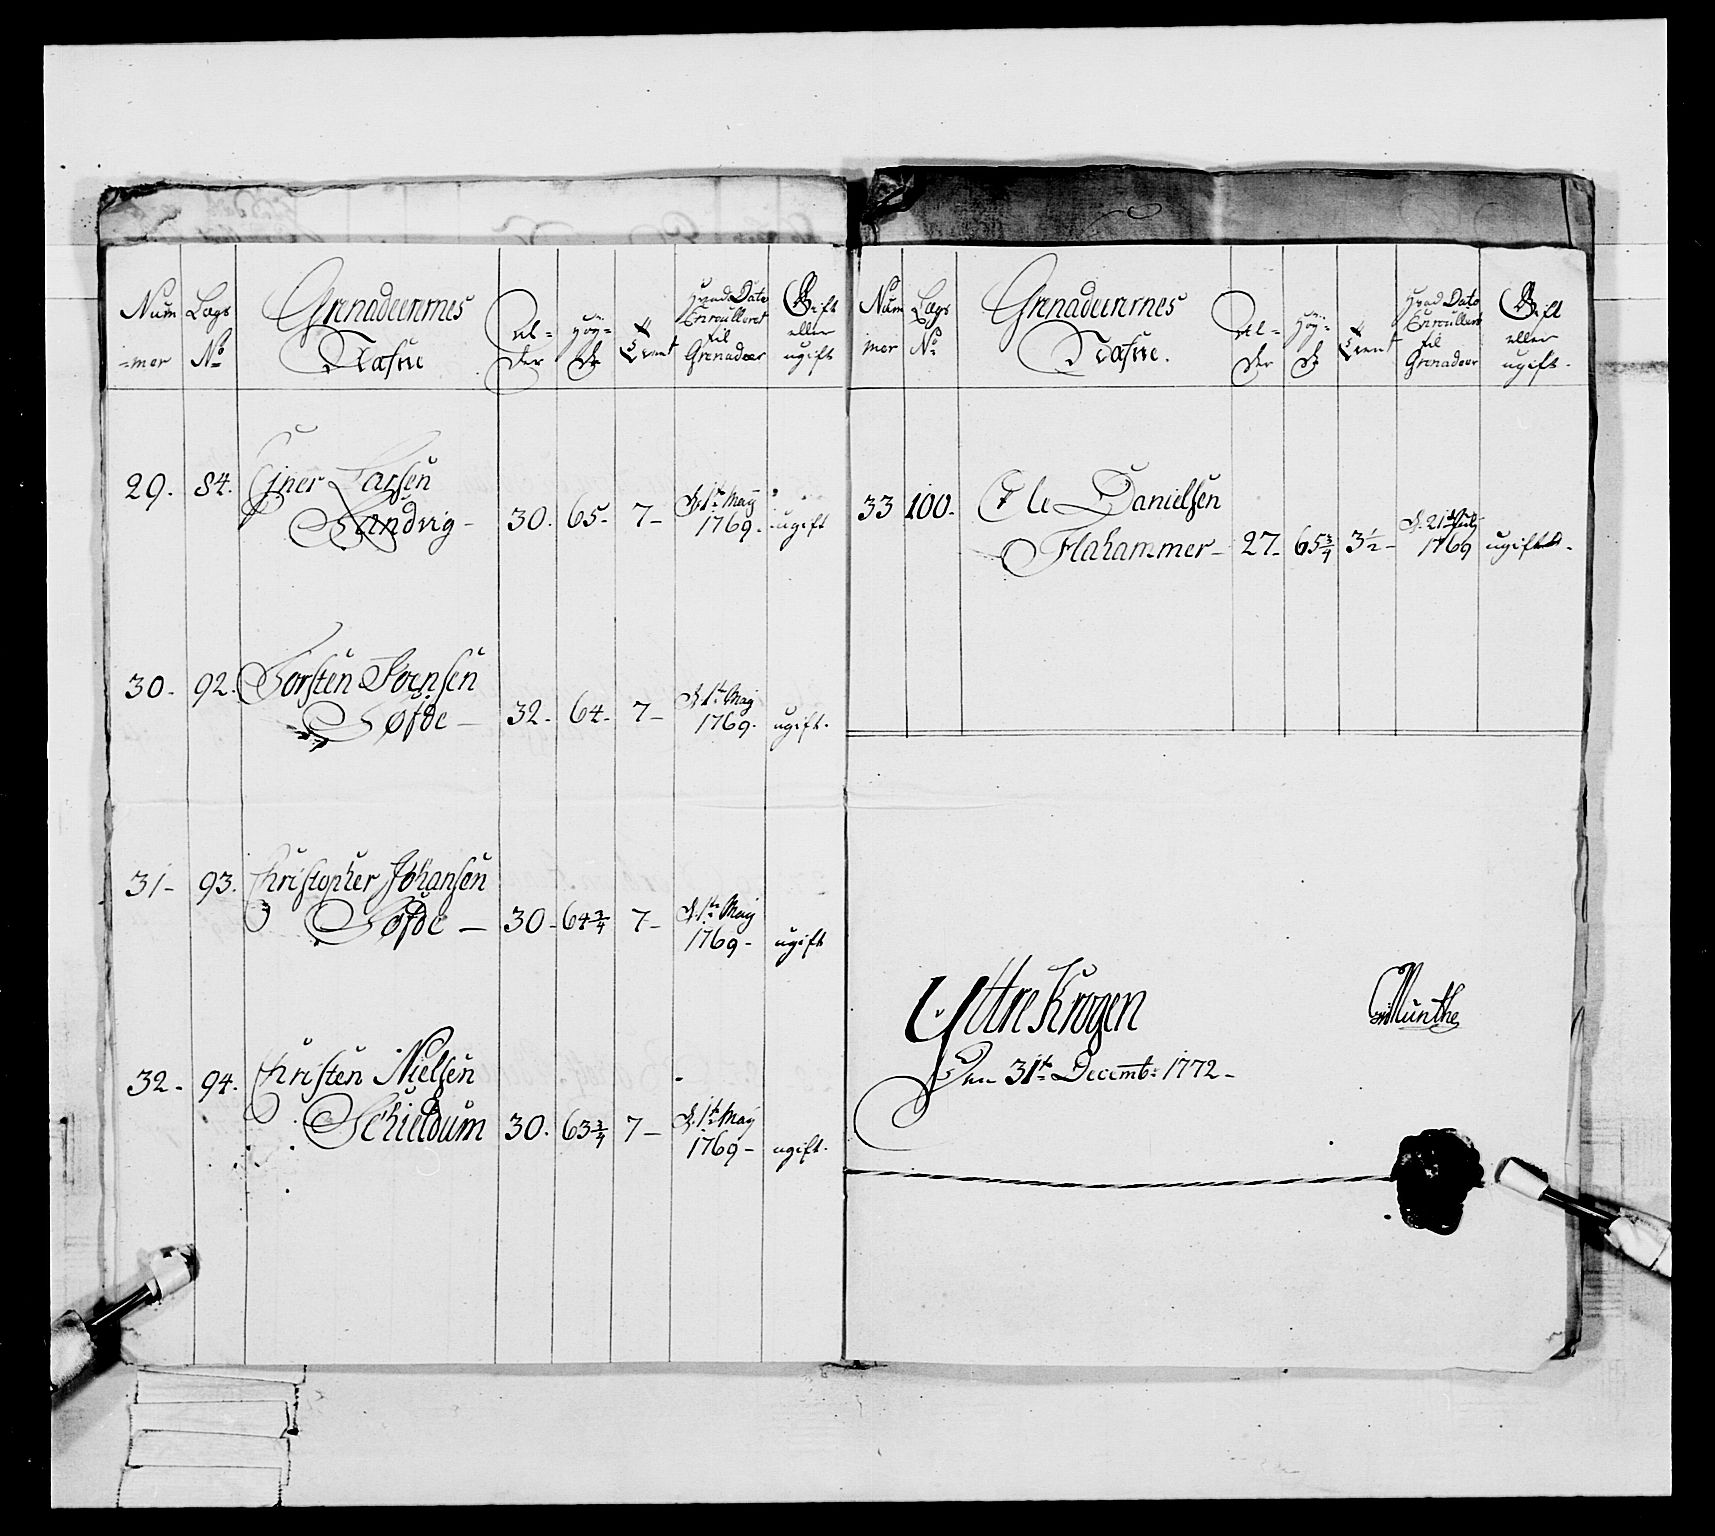 Num-mer Lægs No Grenadeerernes Nafne Al-der Høy-de Tient Hvad Dato Enroulleret til Grenadeer Gift eller ugift
29. 84. Ejner Larsen
Sandvig - 30. 65. 7- D. 1te Maij 1769. ugift
30. 92. Torsten Svensen
Tøfde - 32. 64. 7- D. 1te Maij 1769. ugift.
31- 93. Christopher Johansen
Tøfde - 30. 64 3/4 7- D. 1te Maij 1769- ugift
32. 94. Christen Nielsen
Schieldum 30. 63 3/4 7- D. 1te Maij 1769- ugift.
Num mer Lægs No Grenadeerernes Nafne. Al-der Høy-de Tient Hvad Dato Enroulleret til Grenadeer Gift eller ugift.
33 100. Ole Danielsen
Flahammer- 27- 65 3/4 3 1/2- D. 21de July 1769 ugift.
Yttre Krogen
Den 31te Decembr: 1772-
Munthe